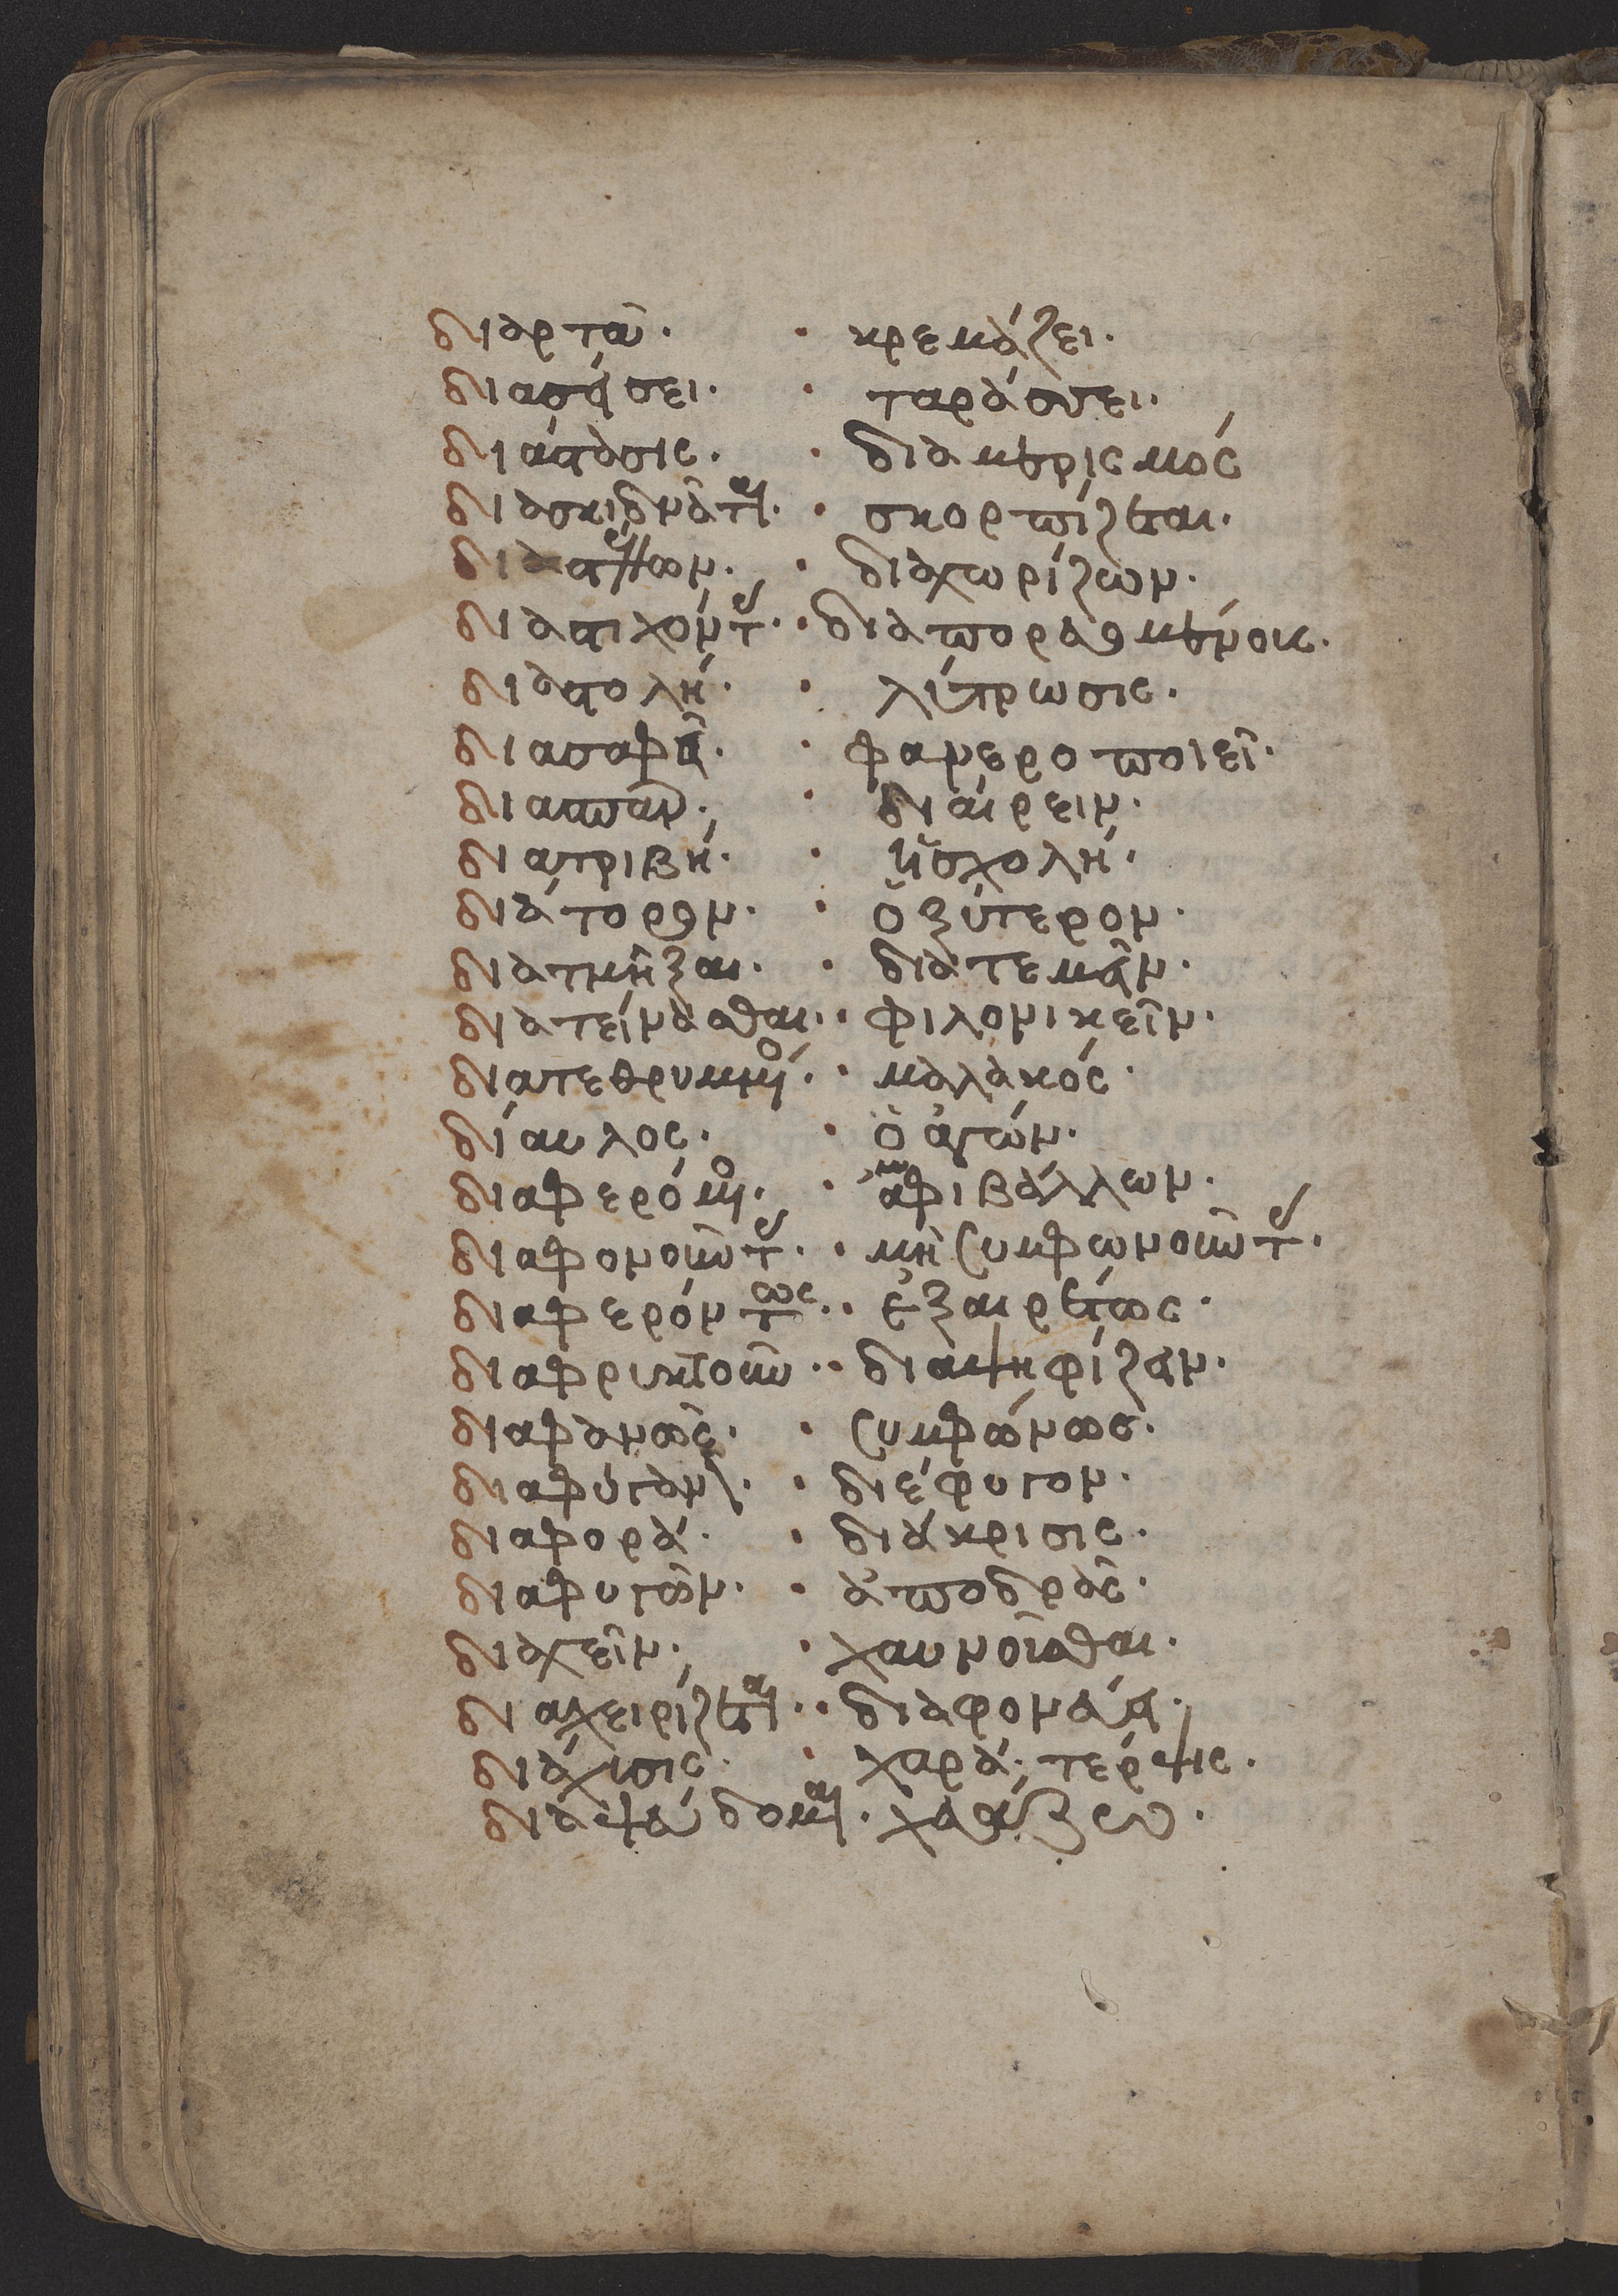 διαρτᾶν. · κρεμάζει.
διασείσει. · ταράσσει.
διάστασις. · διαμερισμός
διασκίδναται. · σκορπίζεται.
διαστέλλων. · διαχωρίζων.
διαστιχόντες. · διαπορευόμενοις.
διαστολή. · λύτρωσις.
διασαφεῖ. · φανεροποιεῖ.
διασπᾶν. · διαίρειν.
διατριβή. · ἡ σχολή.
διάτορον. · ὀξύτερον.
διατμῆξαι. · διατεμεῖν.
διατείνασθαι. · φιλονικεῖν.
διατεθρυμμένος. · μαλακός.
δίαυλος. · ὁ ἀγών.
διαφερόμενος. · ἀμφιβάλλων.
διαφονοῦντες. · μὴ συμφωνοῦντες.
διαφερόντως. · ἐξαιρέτως.
διαφρυκτοῦν. · διαψηφίζειν.
διαφανῶς. · συμφώνως.
διαφυγάνει. · διέφυγον.
διαφορά. · διάκρισις.
διαφυγών. · ἀποδράς.
διαχεῖν. · χαυνοῦσθαι.
διαχειρίζεται. · διαφονεύει.
διάχυσις. · χαρά. τέρψις.
διαψεύδομαι. ·